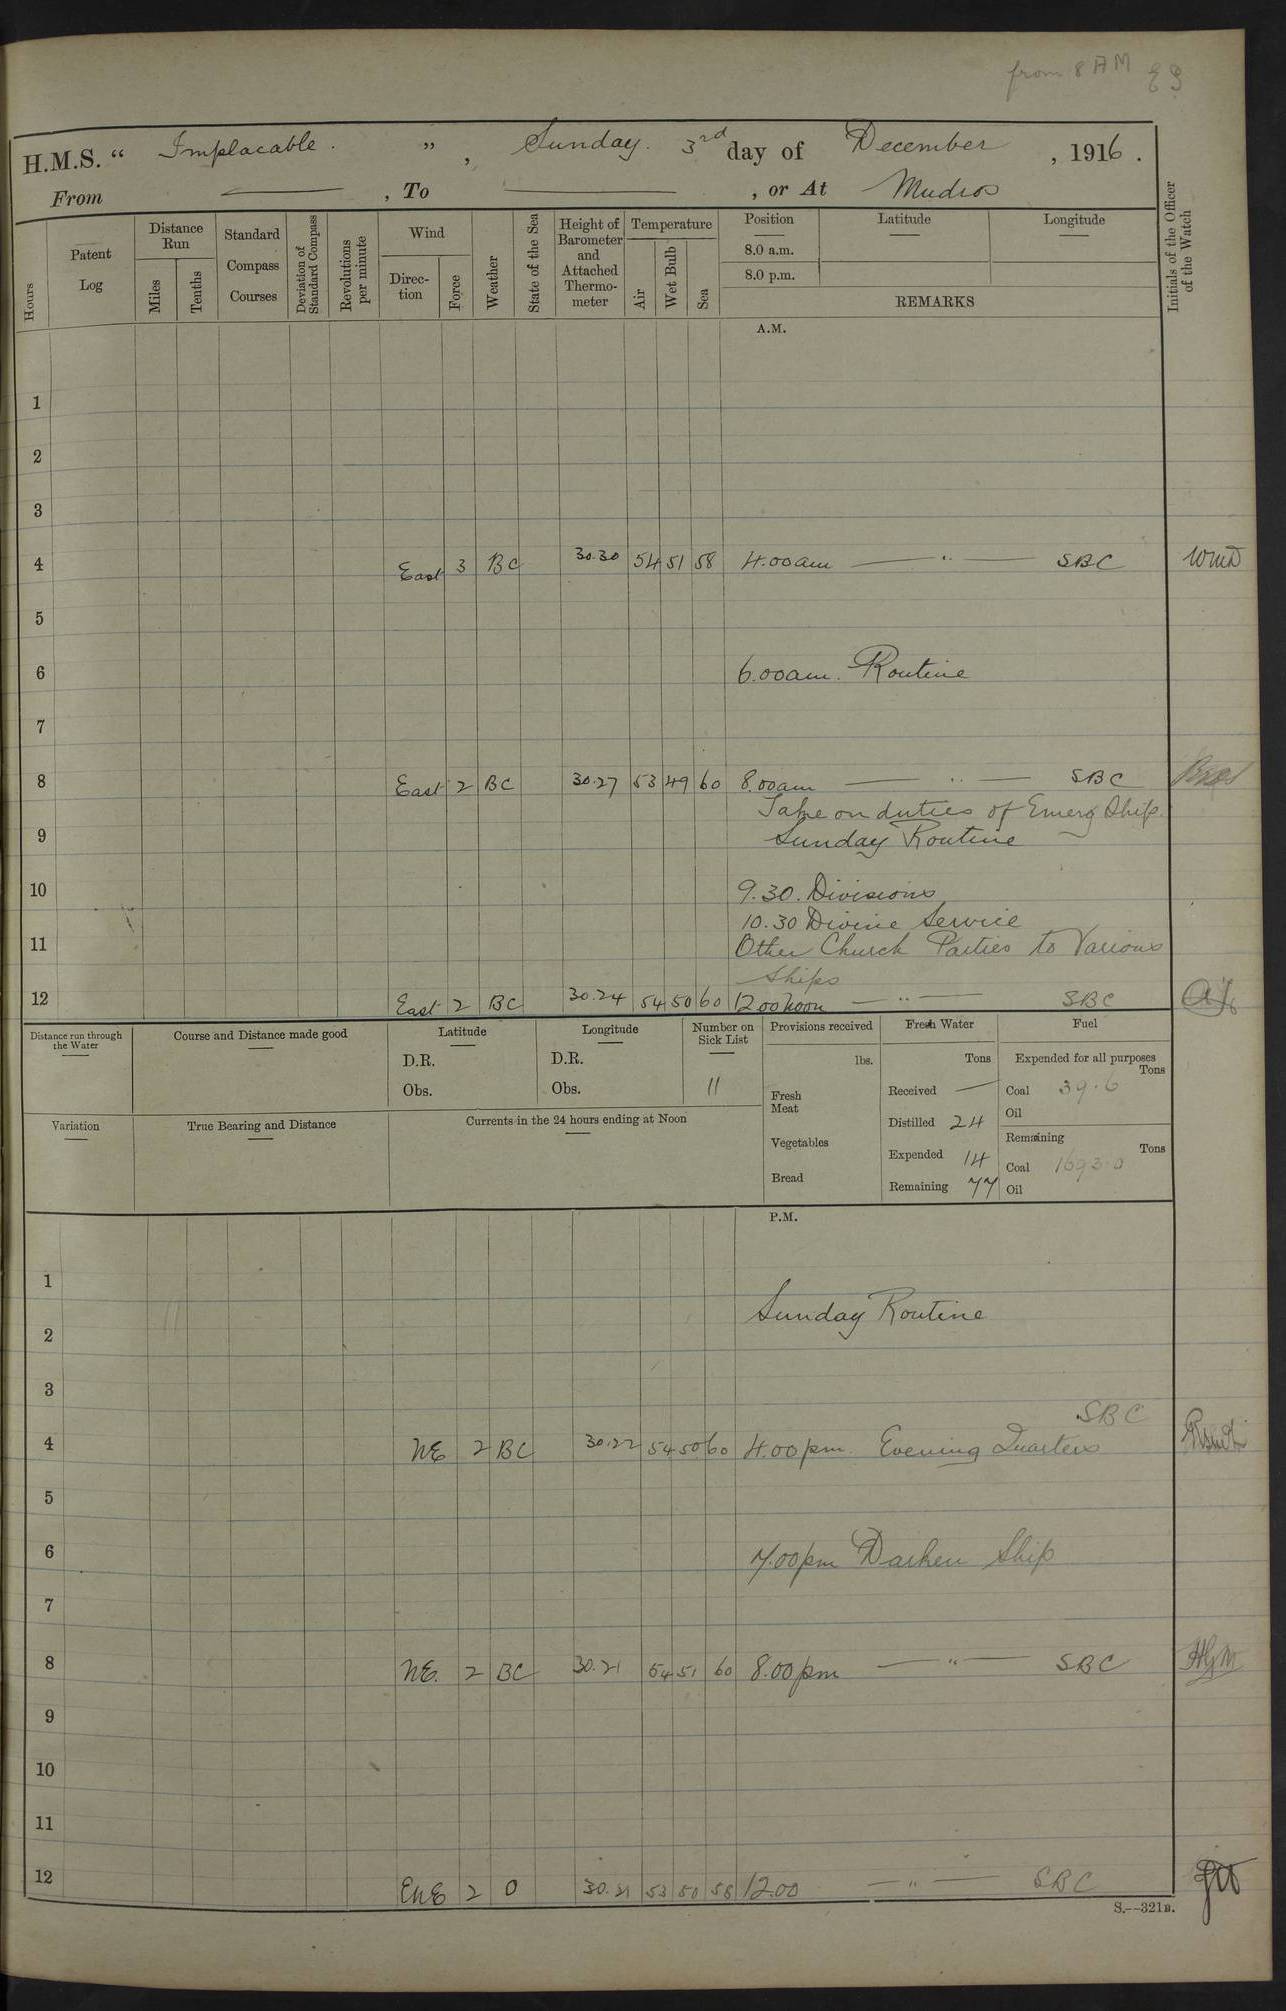 from 8 AM
H.M.S. “ Implacable. ” , Sunday. 3rd day of December , 1916 .
From — , To — , or At Mudros
Hours
Patent Log
Distance Run
Miles
Tenths
Standard Compass Courses
Deviation of Standard Compass
Revolutions per minute
Wind
Direc- tion
Force
Weather
State of the Sea
Height of Barometer and Attached Thermo- meter
Temperature
Air
Wet Bulb
Sea
Position
8.0 a.m.
8.0 p.m.
Latitude
Longitude
REMARKS
Initials of the Officer of the Watch
A.M.
1
2
3
4 East 3 BC 30.30 54 51 58 4.00am — " — SBC WMD
5
6 6.00am. Routine
7
8 East 2 BC 30.27 53 49 60 8.00am — " — SBC
Take on duties of Emerg Ship.
9 Sunday Routine
10 9.30. Divisions
10.30 Divine Service
11 Other Church Parties to Various
Ships
12 East 2 BC 30.24 54 50 60 12.00 noon — " — SBC
Distance run through the Water
Course and Distance made good
Latitude
D.R.
Obs.
Longitude
D.R.
Obs.
Number on Sick List
11
Provisions received
lbs.
Fresh Meat
Vegetables
Bread
Fresh Water
Tons
Received —
Distilled 24
Expended 14
Remaining 77
Fuel
Expended for all purposes
Tons
Coal 39.6
Oil
Remaining
Tons
Coal 1693.0
Oil
Variation
True Bearing and Distance
Currents in the 24 hours ending at Noon
P.M.
1
Sunday Routine
2
3
SBC
4 NE 2 BC 30.22 54 50 60 4.00pm. Evening Quarters
5
6 7.00pm Darken Ship
7
8 NE. 2 BC 30.21 54 51 60 8.00pm — " — SBC HGM
9
10
11
12 ENE 2 O 30.21 53 50 58 12.00 — " — SBC
S.--321B.